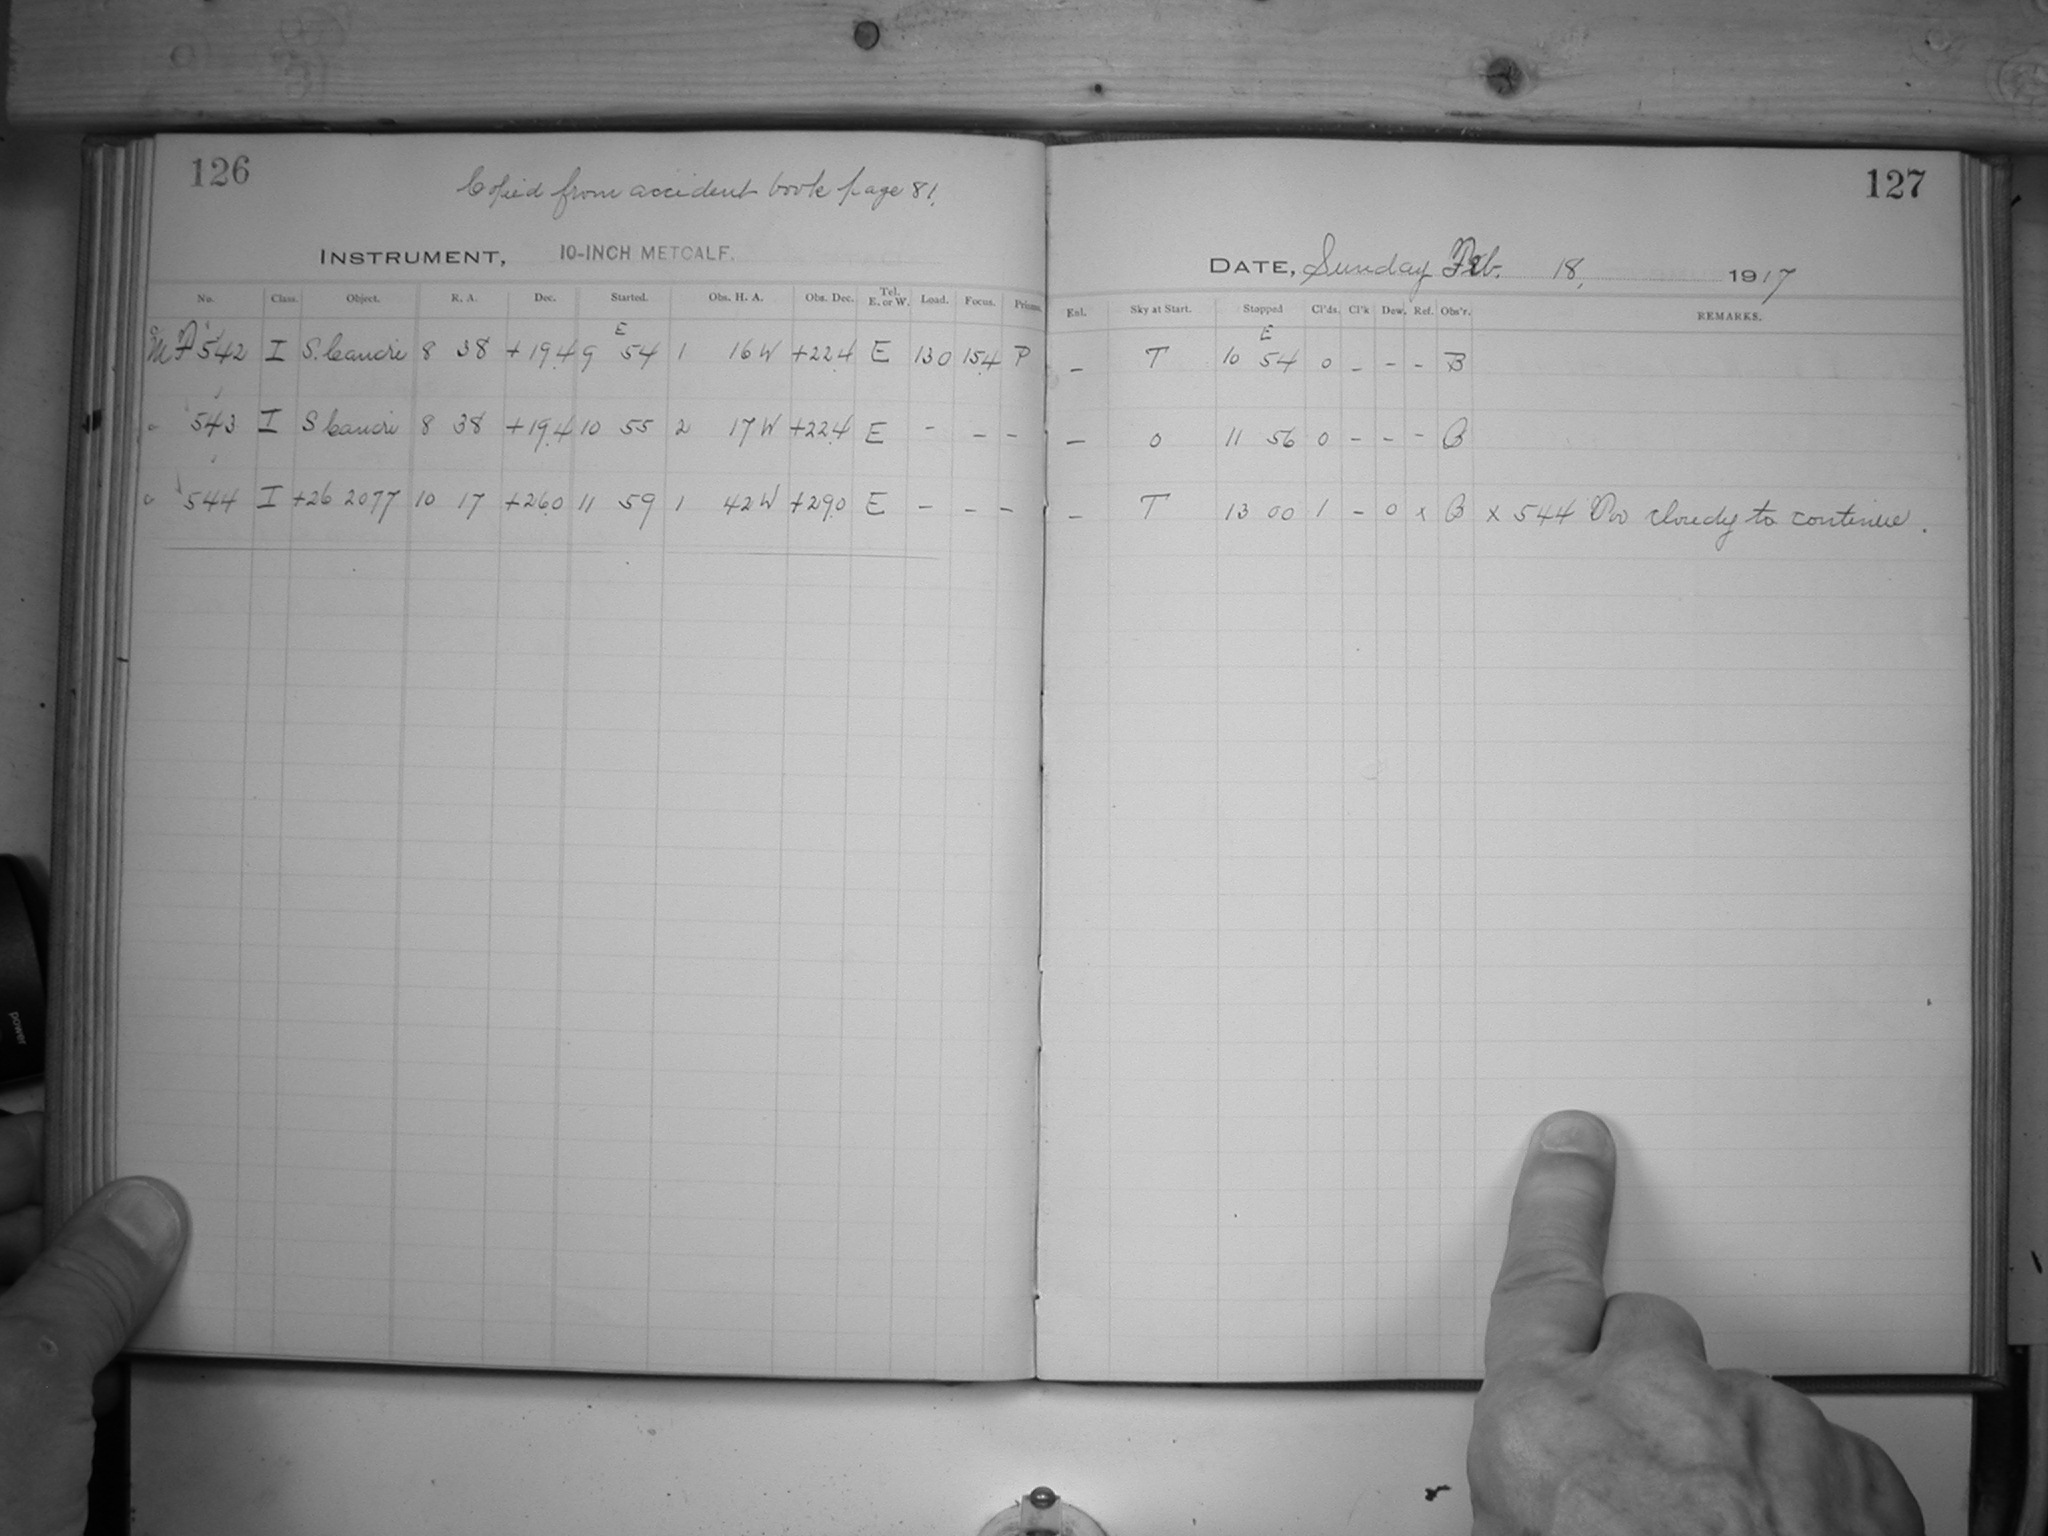 126
Copied from accident book page 81.
INSTRUMENT, 10-INCH METCALF.
No. Class. Object. R. A. Dec. Started. Obs. H. A. Obs. Dec. Tel. E. or W. Load. Focus. Prisms.
E
MF 542 I S. Cancri 8 38 +19.4 9 54 1 16 W +22.4 E 130 15.4 P
543 I S Cancri 8 38 +19.4 10 55 2 17 W +22.4 E - - -
544 I +26 2077 10 17 +26.0 11 59 1 42 W +29.0 E - - -
127
DATE, Sunday Feb. 18, 1917
Enl. Sky at Start. Stopped Cl'ds. Cl'k Dew. Ref. Obs'r. REMARKS.
E
- T 10 54 0 - - - B
- 0 11 56 0 - - - B
- T 13 00 1 - 0 x B x 544 Too cloudy to continue.
power